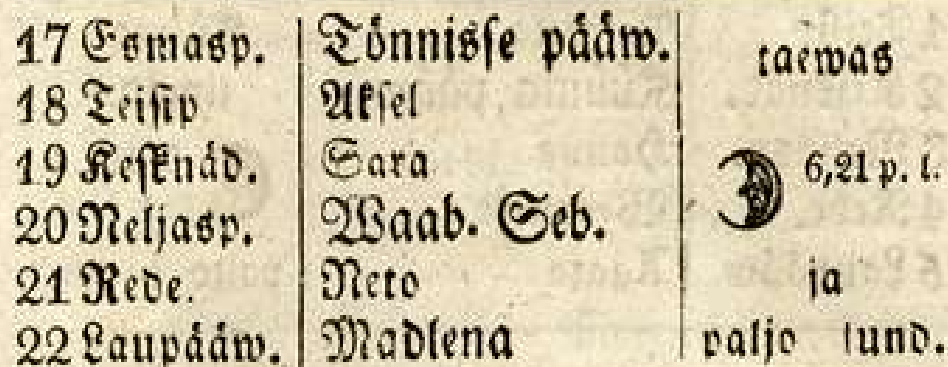 17 Esmasp. Tõnnisse pääw. taewas
18 Teisip Aksel
19 Kesknäd. Sara 6,21 p. l.
20 Neljasp. Waab. Seb.
21 Rede. Nero ja
22 Laupääw. Madlena paljo lund.